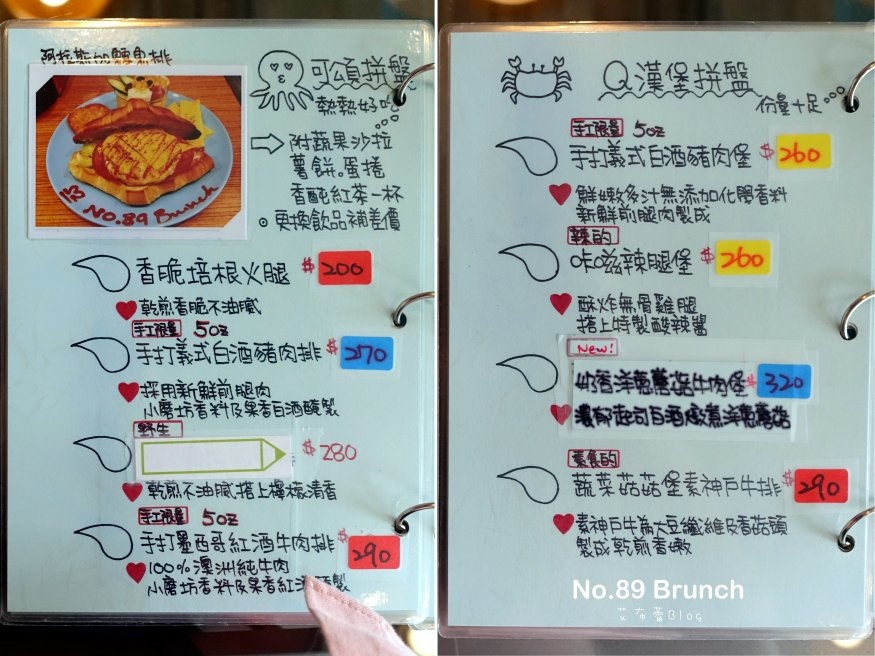 阿拉斯加鱈魚排
可頌拼盤
熱熱好吃
附蔬果沙拉
薯餅。蛋捲
香醇紅茶一杯
更換飲品補差價
No.89 Brunch
香脆培根火腿 $200
乾煎香脆不油膩
手工限量 5oz
手打義式白酒豬肉排 $270
採用新鮮前腿肉
小磨坊香料及果香白酒醃製
野生
$280
乾煎不油膩.搭上檸檬清香
手工限量 5oz
手打墨西哥紅酒牛肉排 $290
100%澳洲純牛肉
小磨坊香料及果香紅酒 製
Q漢堡拼盤
份量十足
手工限量 5oz
手打義式白酒豬肉堡 $260
鮮嫩多汁無添加化學香料
新鮮前腿肉製成
辣的
咔滋辣腿堡 $260
酥炸無骨雞腿
搭上特製酸辣醬
New!
奶香洋蔥蘑菇牛肉堡 $320
濃郁起司白酒燉煮洋蔥蘑菇
素食的
蔬菜菇菇堡素神戶牛排 $290
素神戶牛為大豆纖維及香菇頭
製成乾煎香嫩
No.89 Brunch
艾布蕾Blog